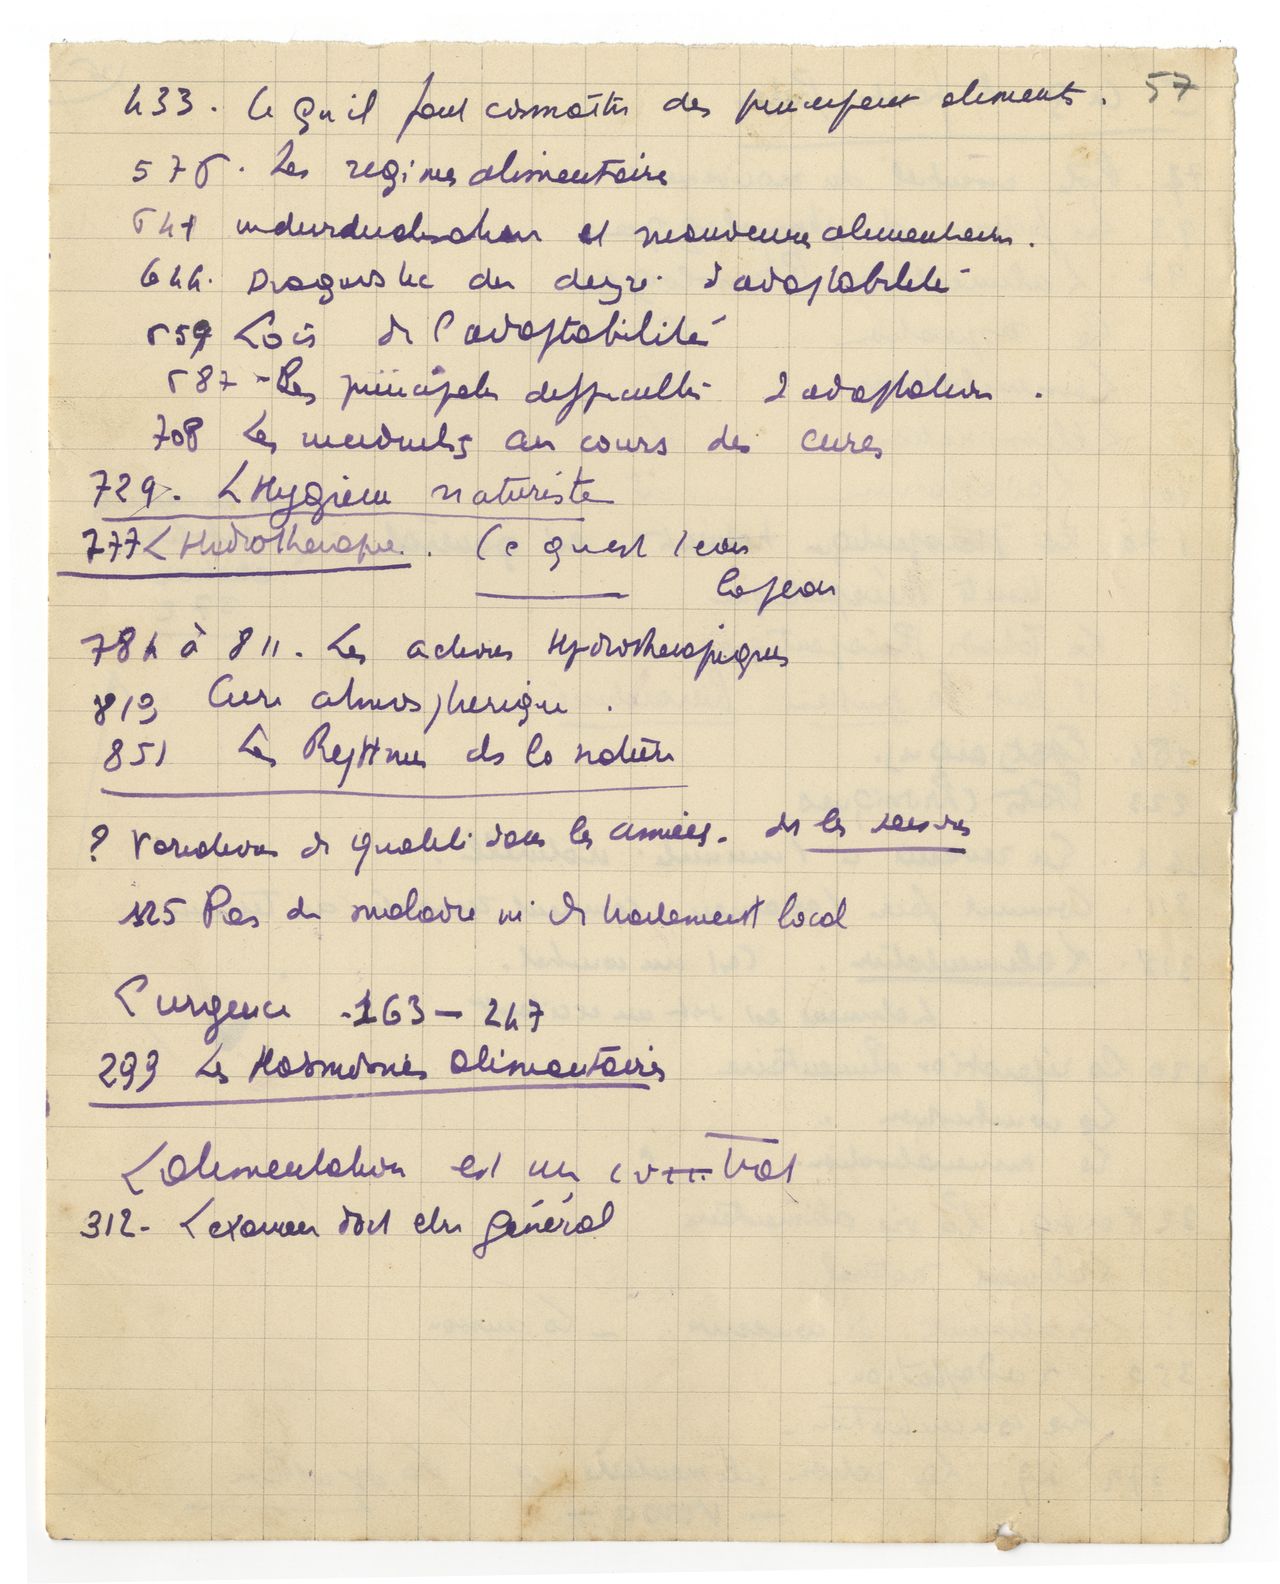 57
433. Ce qu'il faut connaître des principaux aliments.
576. Les regimes alimentaire
641 individualisation et manoeuvres alimentaires.
644. Diagnostic du degré d'adaptabilité
659 Lois de l'adaptabilité
687 - Les principales difficultés d'adaptation.
708 Les incidents au cours des cures
729. L'Hygiene naturiste
777 L'Hydrotherapie. Ce qu'est l'eau
la peau
784 à 811. Les actions Hydrotherapiques
819 Cure atmospherique.
851 Les Rythmes de la nature
? Variations de qualité dans les années. des les saisons
125 Pas de maladie ni de traitement local
L'urgence .163 - 247
299 Les Harmonies alimentaires
L'alimentation est un contrat
312- L'examen doit etre général